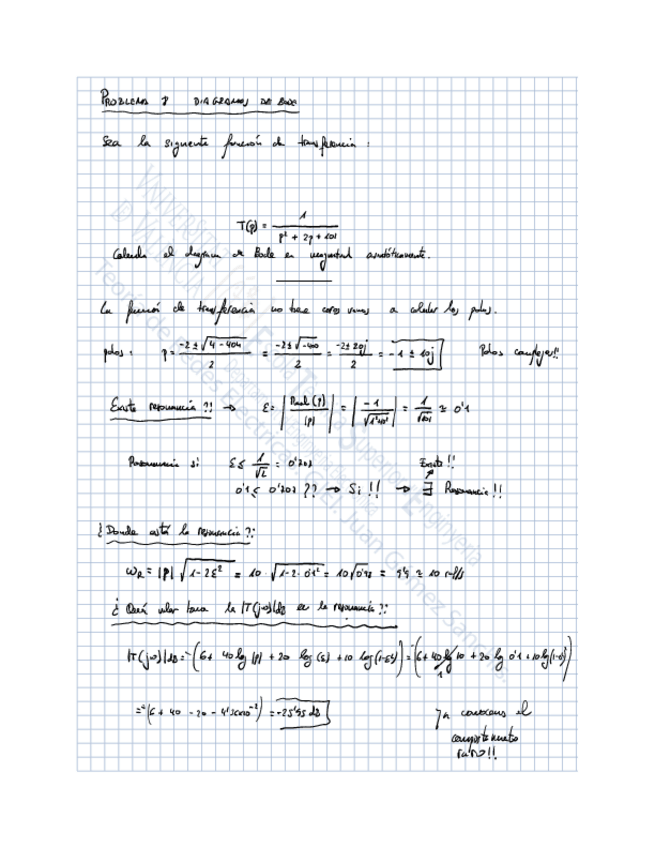 PROBLEMA 8 DIAGRAMAS DE BODE
Sea la siguiente función de transferencia :
T(p) = 1 / (p² + 2p + 101)
Calcula el diagrama de Bode en magnitud asintóticamente.
La función de transferencia no tiene ceros vamos a calcular los polos.
polos : p = (-2 ± √(4 - 404)) / 2 = (-2 ± √-400) / 2 = (-2 ± 20j) / 2 = -1 ± 10j Polos complejos!!
Existe resonancia ?! → ε = |Real(p) / |p|| = |-1 / √(1²+10²)| = 1/√101 ≅ 0'1
Resonancia si: ε ≤ 1/√2 = 0'707 Existe !!
0'1 ≤ 0'707 ?? → Si !! → ∃ Resonancia !!
¿ Donde está la resonancia ?:
ω_R = |p| √(1-2ε²) = 10 · √(1-2·0'1²) = 10√0'98 = 9'9 ≅ 10 r/s
¿ Qué valor tiene la |T(jω)|dB en la resonancia ?:
|T(jω)|dB = -(6 + 40 log |p| + 20 log (ε) + 10 log (1-ε²)) = -(6 + 40 log 10 + 20 log 0'1 + 10 log (1-0'1²))
1
= -(6 + 40 - 20 - 4'36·10⁻²) = -25'95 dB
Ya conocemos el
comportamiento
raro!!